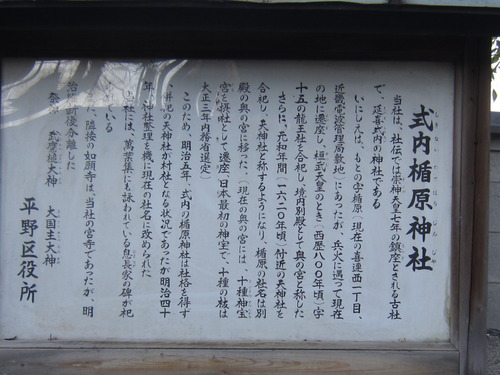 式内楯原神社
しきないたてはらじんじゃ
当社は、社伝では崇神天皇七年の鎮座とされる古社
で、延喜式内の神社である
いにしえは、もとの字楯原(現在の喜連西一丁目、
近畿電波管理局敷地)にあったが、兵火に遇って現在
の地に遷座し、桓武天皇のとき(西歴八〇〇年頃)字
十五の龍王社を合祀し、境内別殿として奥の宮と称した
さらに、元和年間(一六二〇年頃)付近の天神社を
合祀し、天神社と称するようになり、楯原の社名は別
殿の奥の宮に移った(現在の奥の宮には、十種神宝
宮を摂社として遷座、日本最初の神宝で、十種の祓は
大正三年内務省選定)
このため、明治五年、式内の楯原神社は社格を得ず
、併祀の天神社が村社となる状況であったが明治四十
年、神社整理を機に現在の社名に改められた
社には、萬葉集にも詠われている息長家の碑が祀
ている
た、隣接の如願寺は、当社の宮寺であったが、明
治 前後分離した
祭 武甕槌大神 大国主大神
平野区役所